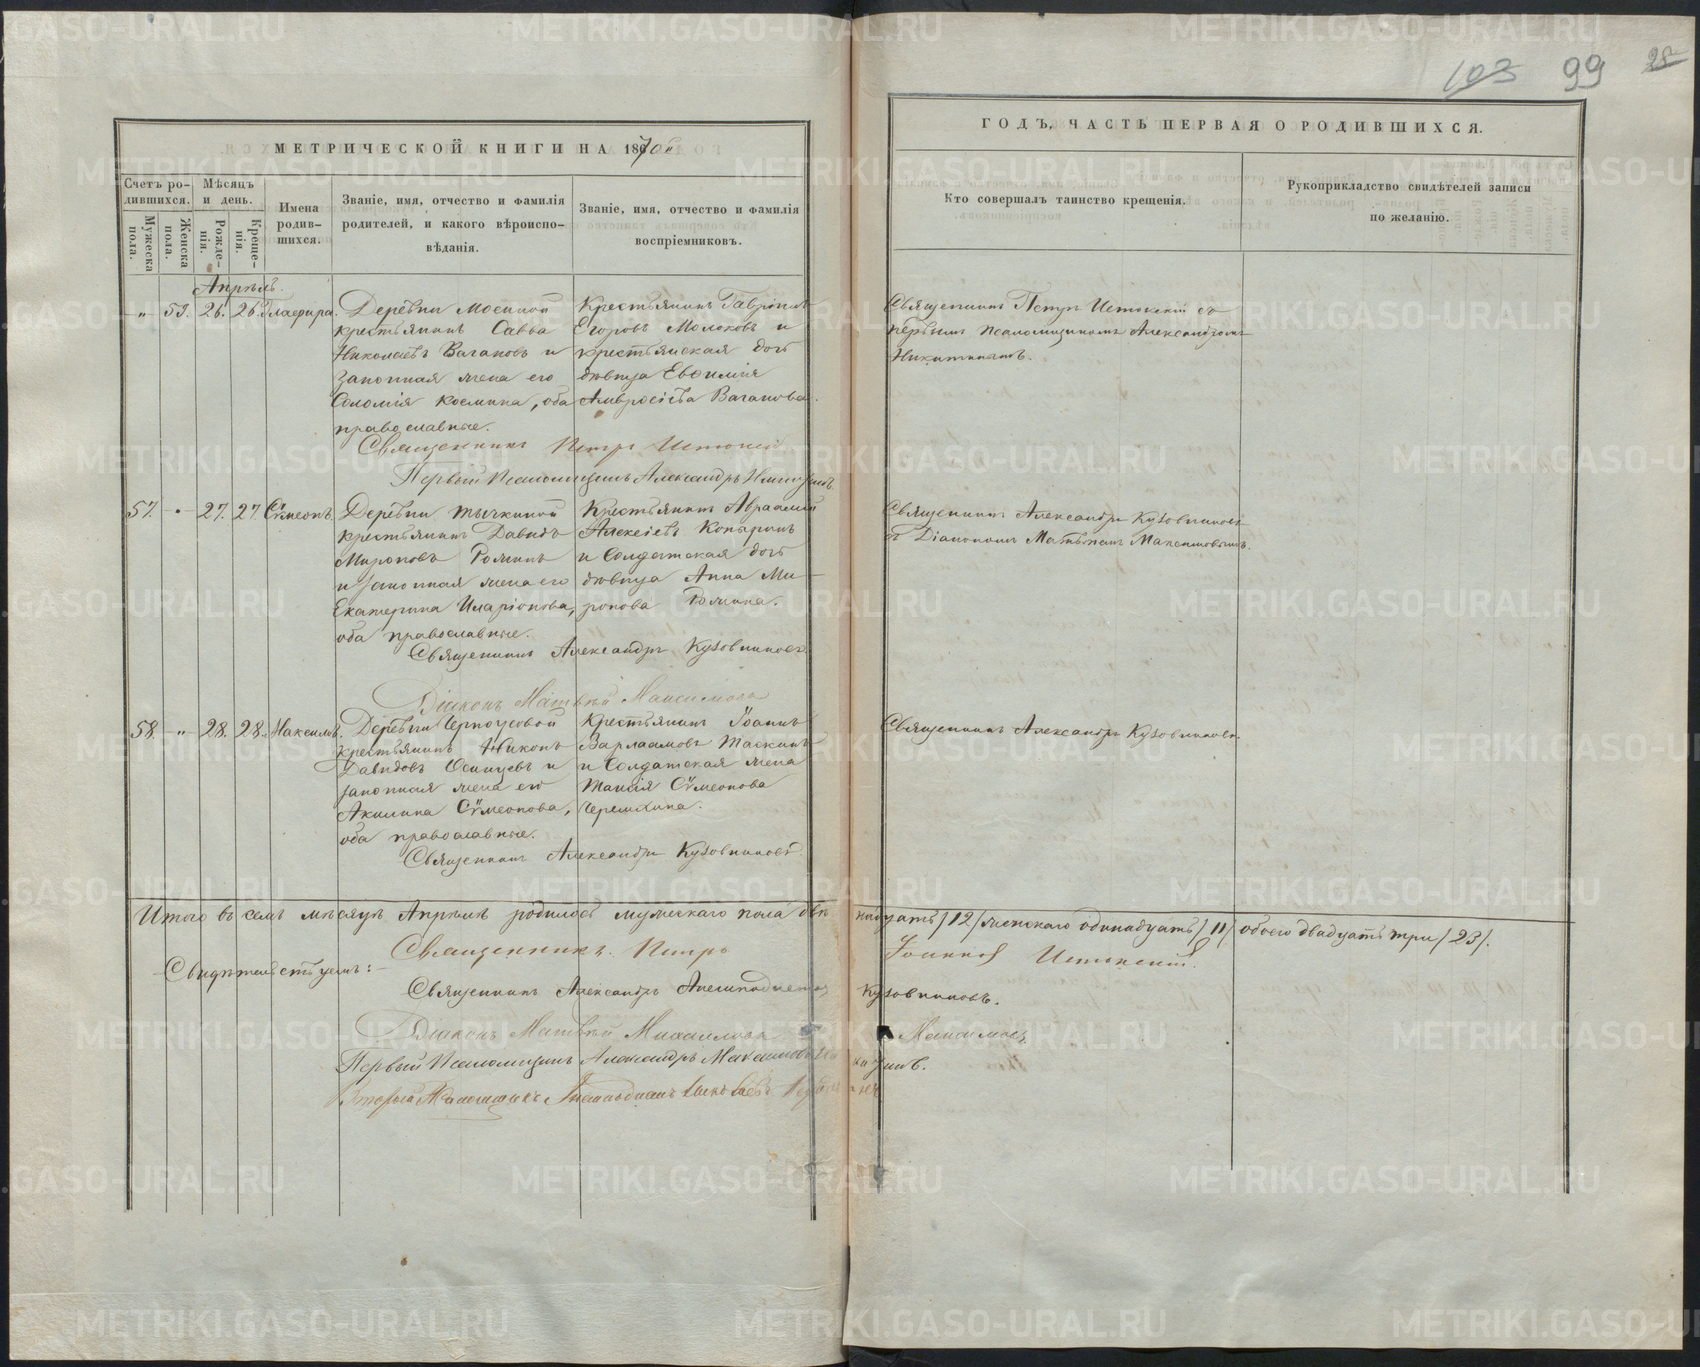 103 99 28
МЕТРИЧЕСКОЙ КНИГИ НА 1870й
ГОДЪ, ЧАСТЬ ПЕРВАЯ О РОДИВШИХСЯ.
Счетъ ро-
дившихся.
Мужеска
пола.
Женска
пола.
Мѣсяцъ
и день.
Рожде-
нія.
Креще-
нія.
Имена
родив-
шихся.
Званіе, имя, отчество и фамилія
родителей, и какого вѣроиспо-
вѣданія.
Званіе, имя, отчество и фамилія
воспріемниковъ.
Кто совершалъ таинство крещенія.
Рукоприкладство свидѣтелей записи
по желанію.
Апрѣль.
" 53. 26. 26. Глафира.
Деревни Мосиной
крестьянинъ Савва
Николаевъ Вагановъ и
законная жена его
Соломія Космина, оба
православные.
Крестьянинъ Гавріилъ
Егоровъ Молоковъ и
крестьянская дочь
дѣвица Евѳимія
Амвросіева Ваганова.
Священникъ Петръ Истокскій съ
первымъ псаломщикомъ Александромъ
Никитинымъ.
Священникъ Петръ Истокскій
Первый Псаломщикъ Александръ Никитинъ.
57. " 27. 27. Сѵмеонъ.
Деревни Тычкиной
крестьянинъ Давидъ
Мироновъ Роминъ
и законная жена его
Екатерина Иларіонова,
оба православные.
Крестьянинъ Авраамій
Алексіевъ
и Солдатская дочь
дѣвица Анна Ми-
ронова Ромина.
Священникъ Александръ Кузовниковъ
съ Діакономъ Матѳіемъ Максимовымъ.
Священникъ Александръ Кузовниковъ
Діаконъ Матвѣй Максимовъ
58. " 28. 28. Максимъ.
Деревни Черноусовой
крестьянинъ Никонъ
Давидовъ Осинцевъ и
законная жена его
Акилина Сѵмеонова,
оба православные.
Крестьянинъ Іоаннъ
Варлаамовъ Таскинъ
и Солдатская жена
Таисія Сѵмеонова
Черемхина.
Священникъ Александръ Кузовниковъ.
Священникъ Александръ Кузовниковъ.
Итого въ семъ мѣсяцѣ Апрѣлѣ родилось мужескаго пола двѣнадцать /12/ женскаго одинадцать /11/ обоего двадцать три /23/.
Священникъ Петръ Іоанновъ Истокскій.
Свидѣтельствуемъ:
Священникъ Александръ Аполинадіевъ Кузовниковъ.
Діаконъ Матвѣй Михаиловъ Максимовъ
Первый Псаломщикъ Александръ Максимовъ Никитинъ.
Второй Псаломщикъ